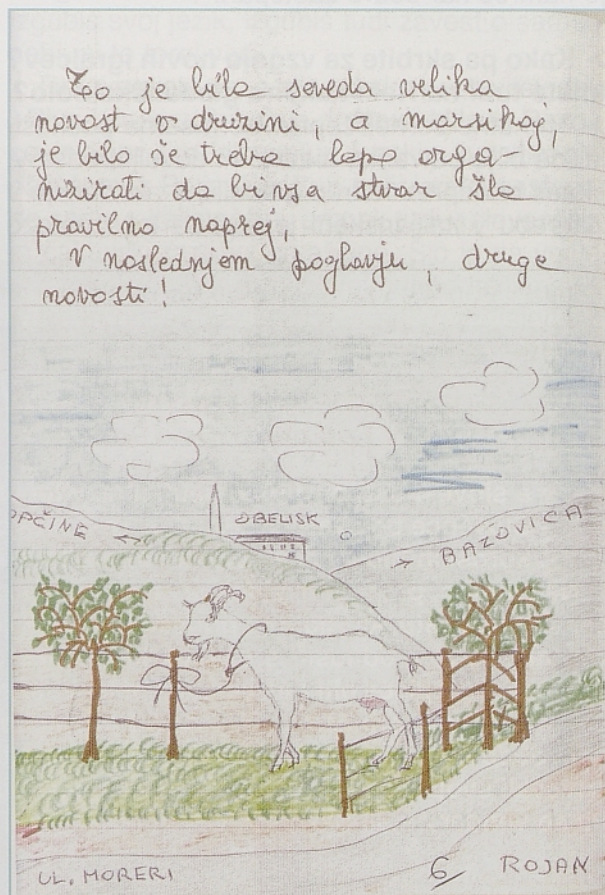 To je bila seveda velika
novost v družini, a marsikaj,
je bilo še treba lepo orga-
nizirati da bi vsa stvar šla
pravilno naprej,
V naslednjem poglavju, druge
novosti!
OPČINE ←
OBELISK
→ BAZOVICA
UL. MORERI
6/
ROJAN